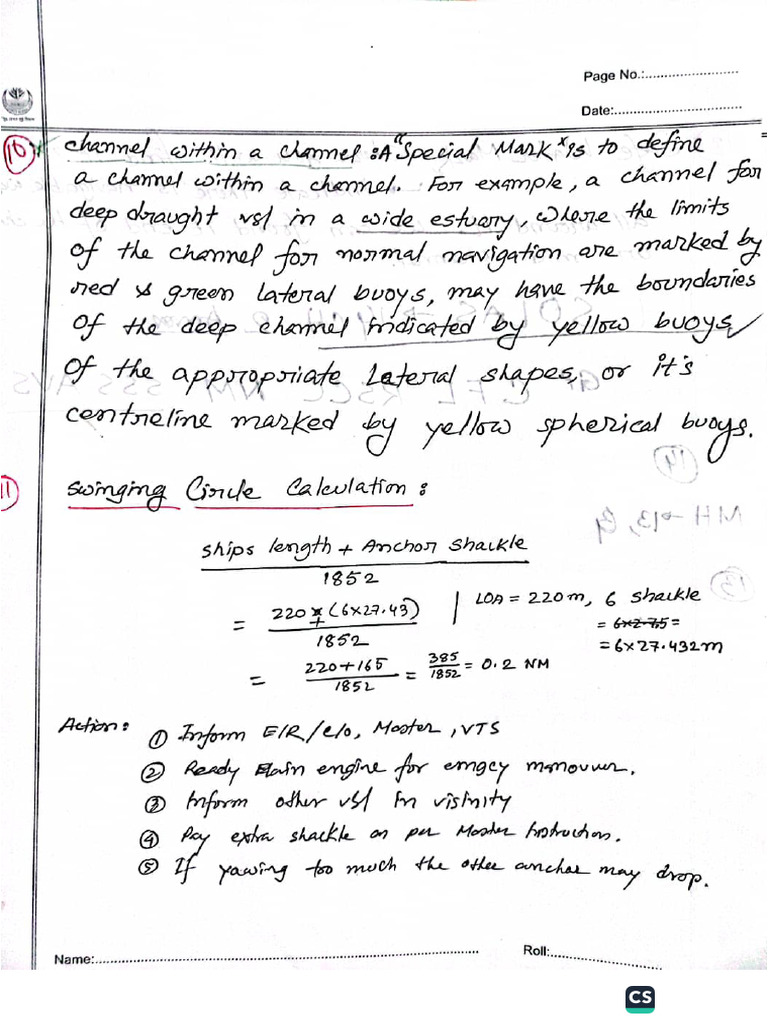 Page No.:........................
Date:................................
10 channel within a channel : A "Special Mark" is to define
a channel within a channel. For example, a channel for
deep draught vsl in a wide estuary, where the limits
of the channel for normal navigation are marked by
red & green lateral buoys, may have the boundaries
of the deep channel indicated by yellow buoys
of the appropriate Lateral shapes, or it's
centreline marked by yellow spherical buoys.
11 Swinging Circle Calculation :
ships length + Anchor shackle
1852
= 220 + (6x27.43) | LOA = 220m, 6 shackle
1852
= 6x27.5 =
= 6x27.432m
= 220+165 = 385 = 0.2 NM
1852 1852
Action : ① Inform E/R / C/O, Master, VTS
② Ready Main engine for emgcy manouver.
③ Inform other vsl in visinity
④ Pay extra shackle as per Master Instruction.
⑤ If yawing too much the other anchor may drop.
Name:................................ Roll:................................
CS